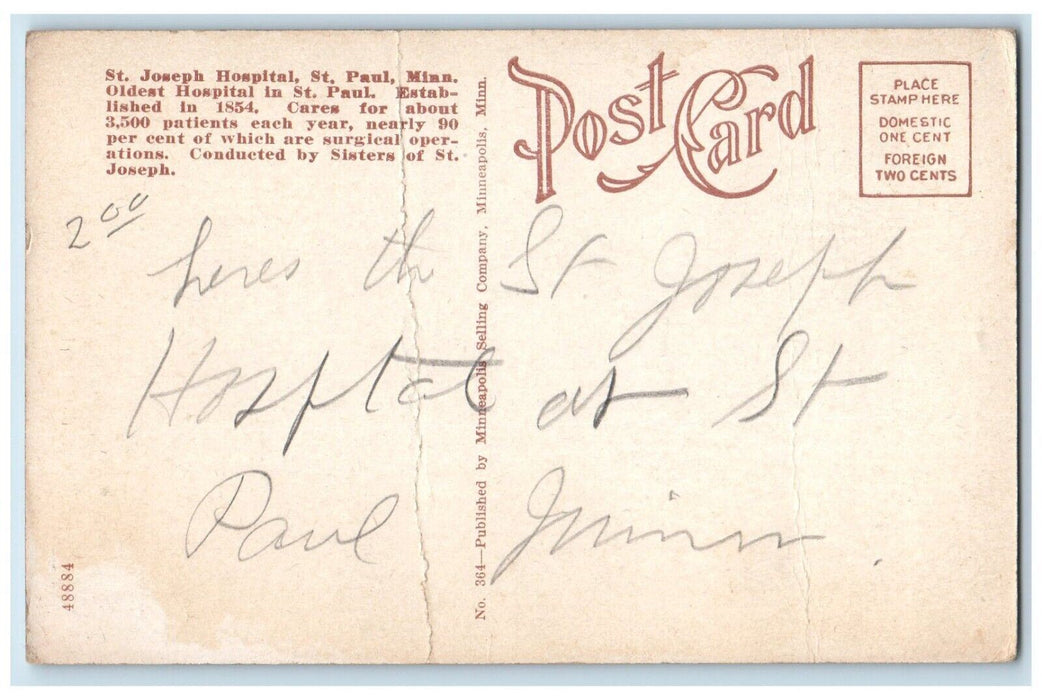 St. Joseph Hospital, St. Paul, Minn.
Oldest Hospital in St. Paul. Estab-
lished in 1854. Cares for about
3,500 patients each year, nearly 90
per cent of which are surgical oper-
ations. Conducted by Sisters of St.
Joseph.
Post Card
PLACE
STAMP HERE
DOMESTIC
ONE CENT
FOREIGN
TWO CENTS
2 00
heres the St Joseph
Hosptal at St
Paul Minn.
48884
No. 364—Published by Minneapolis Selling Company, Minneapolis, Minn.